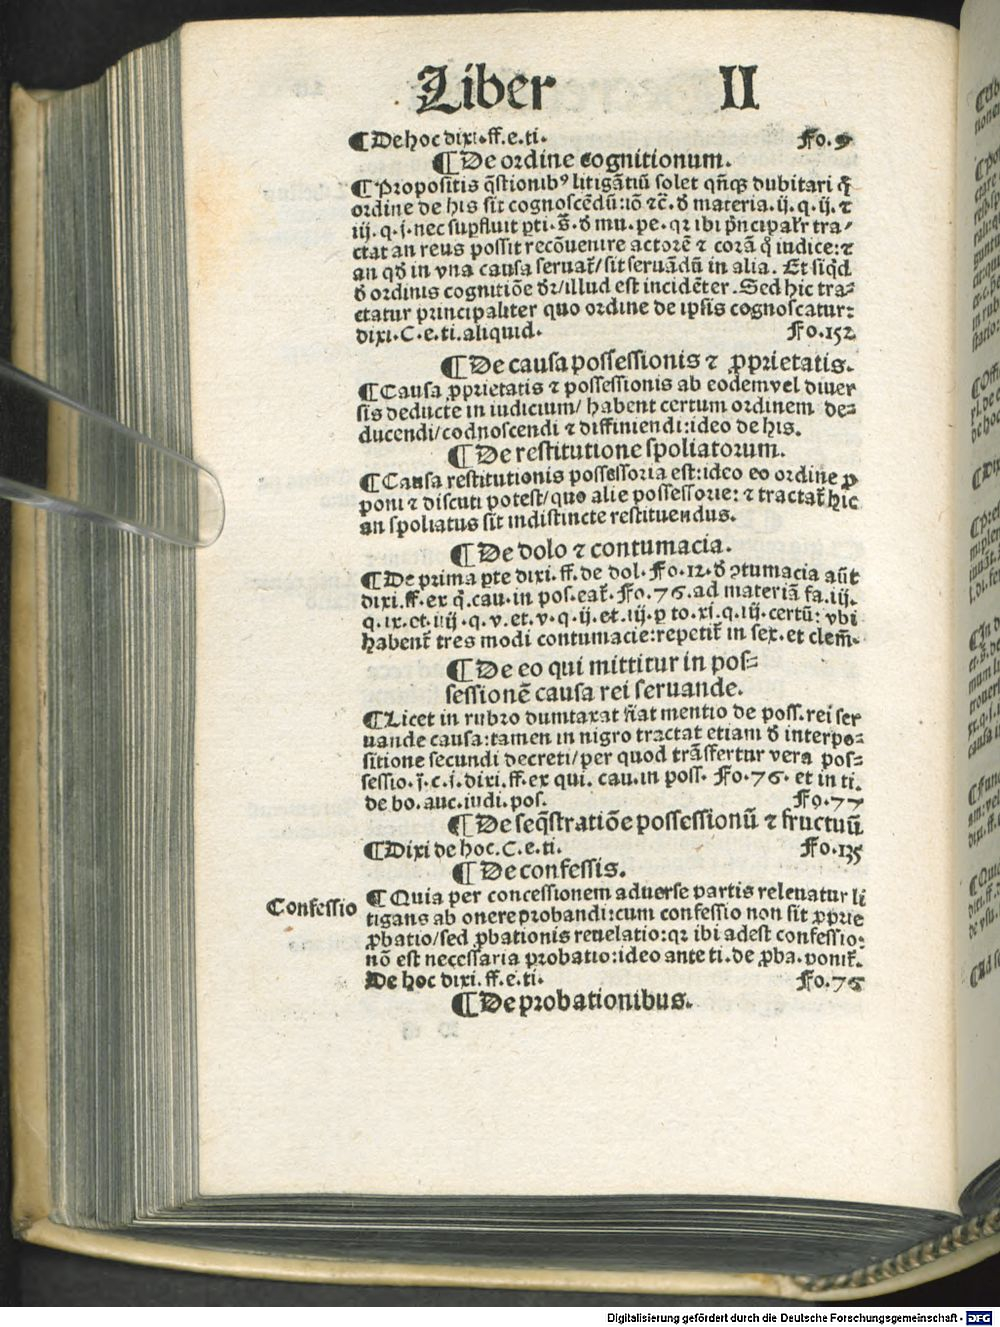 Liber II
¶ De hoc dixi.ff.e.ti. Fo.9
¶ De ordine cognitionum.
¶ Propositis q̄stionibꝰ litigātiū solet qn̄qꝫ dubitari q̄
ordine de his sit cognoscēdū:iō ⁊c̄. ꝺ̄ materia.ij.q.ij.⁊
iij.q.j.nec supfluit ꝑti.§.ꝺ̄ mu.pe.qꝛ ibi pͥncipalr̄ tra⸗
ctat an reus possit recōuenire actorē ⁊ corā q̄ iudice:⁊
an qꝺ̄ in vna causa seruat̄/sit seruādū in alia. Et siqͥd
ꝺ̄ ordinis cognitiōe ꝺr̄/illud est incidēter. Sed hic tra⸗
ctatur principaliter quo ordine de ipsis cognoscatur:
dixi.C.e.ti.aliquid. Fo.152
¶ De causa possessionis ⁊ ꝓprietatis.
¶ Causa ꝓprietatis ⁊ possessionis ab eodem vel diuer
sis deducte in iudicium/ habent certum ordinem de⸗
ducendi/codnoscendi ⁊ diffiniendi:ideo de his.
¶ De restitutione spoliatorum.
¶ Causa restitutionis possessoria est:ideo eo ordine ꝓ
poni ⁊ discuti potest/quo alie possessorie: ⁊ tractat̄ hic
an spoliatus sit indistincte restituendus.
¶ De dolo ⁊ contumacia.
¶ De prima ꝑte dixi.ff.de dol.Fo.12.ꝺ̄ ꝯtumacia aūt
dixi.ff.ex q̄.cau.in pos.eat̄.Fo.76.ad materiā fa.iij.
q.ix.et.iiij.q.v.et.v.q.ij.et.iij.ꝑ to.xi.q.iij.certū: vbi
habent̄ tres modi contumacie:repetit̄ in sex.et clem̄.
¶ De eo qui mittitur in pos⸗
sessionē causa rei seruande.
¶ Licet in rubro dumtaxat fiat mentio de poss.rei ser
uande causa:tamen in nigro tractat etiam ꝺ̄ interpo⸗
sitione secundi decreti/per quod trāsfertur vera pos⸗
sessio.j.c.j.dixi.ff.ex qui. cau.in poss. Fo.76. et in ti.
de bo.auc.iudi.pos. Fo.77
¶ De seq̄stratiōe possessionū ⁊ fructuū
¶ Dixi de hoc.C.e.ti. Fo.135
¶ De confessis.
Confessio
¶ Quia per concessionem aduerse partis releuatur li
tigans ab onere probandi:cum confessio non sit ꝓprie
ꝓbatio/sed ꝓbationis reuelatio:qꝛ ibi adest confessio:
nō est necessaria probatio:ideo ante ti.de ꝓba.ponit̄.
De hoc dixi.ff.e.ti. Fo.76
¶ De probationibus.
Digitalisierung gefördert durch die Deutsche Forschungsgemeinschaft - DFG